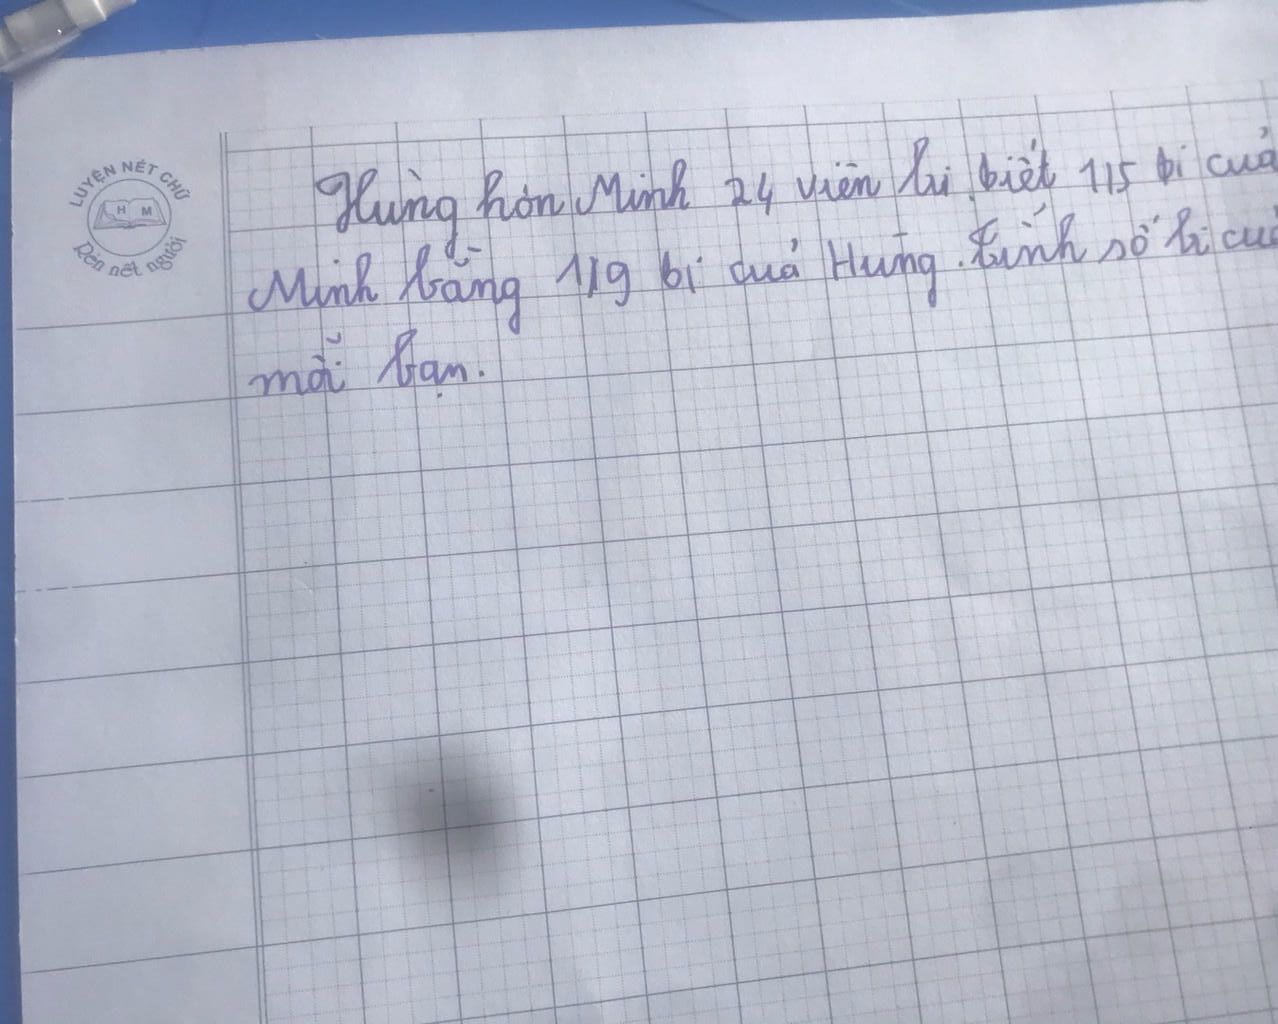 LUYỆN NÉT CHỮ
H M
Rèn nết người
Hùng hơn Minh 24 viên bi, biết 1/5 bi của
Minh bằng 1/9 bi của Hùng. Tính số bi củ
mỗi bạn.